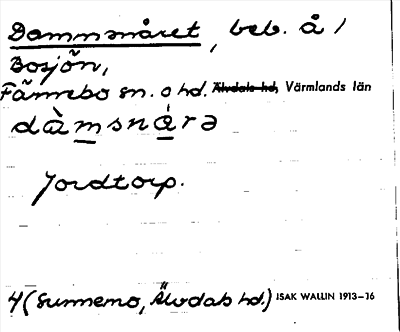 Dammsnåret, beb. å /
Bosjön,
Färnebo sn. o hd. Älvdals hd, Värmlands län
dàmsnárə
Jordtorp.
4 (Sunnemo, Älvdals hd.) ISAK WALLIN 1913–16